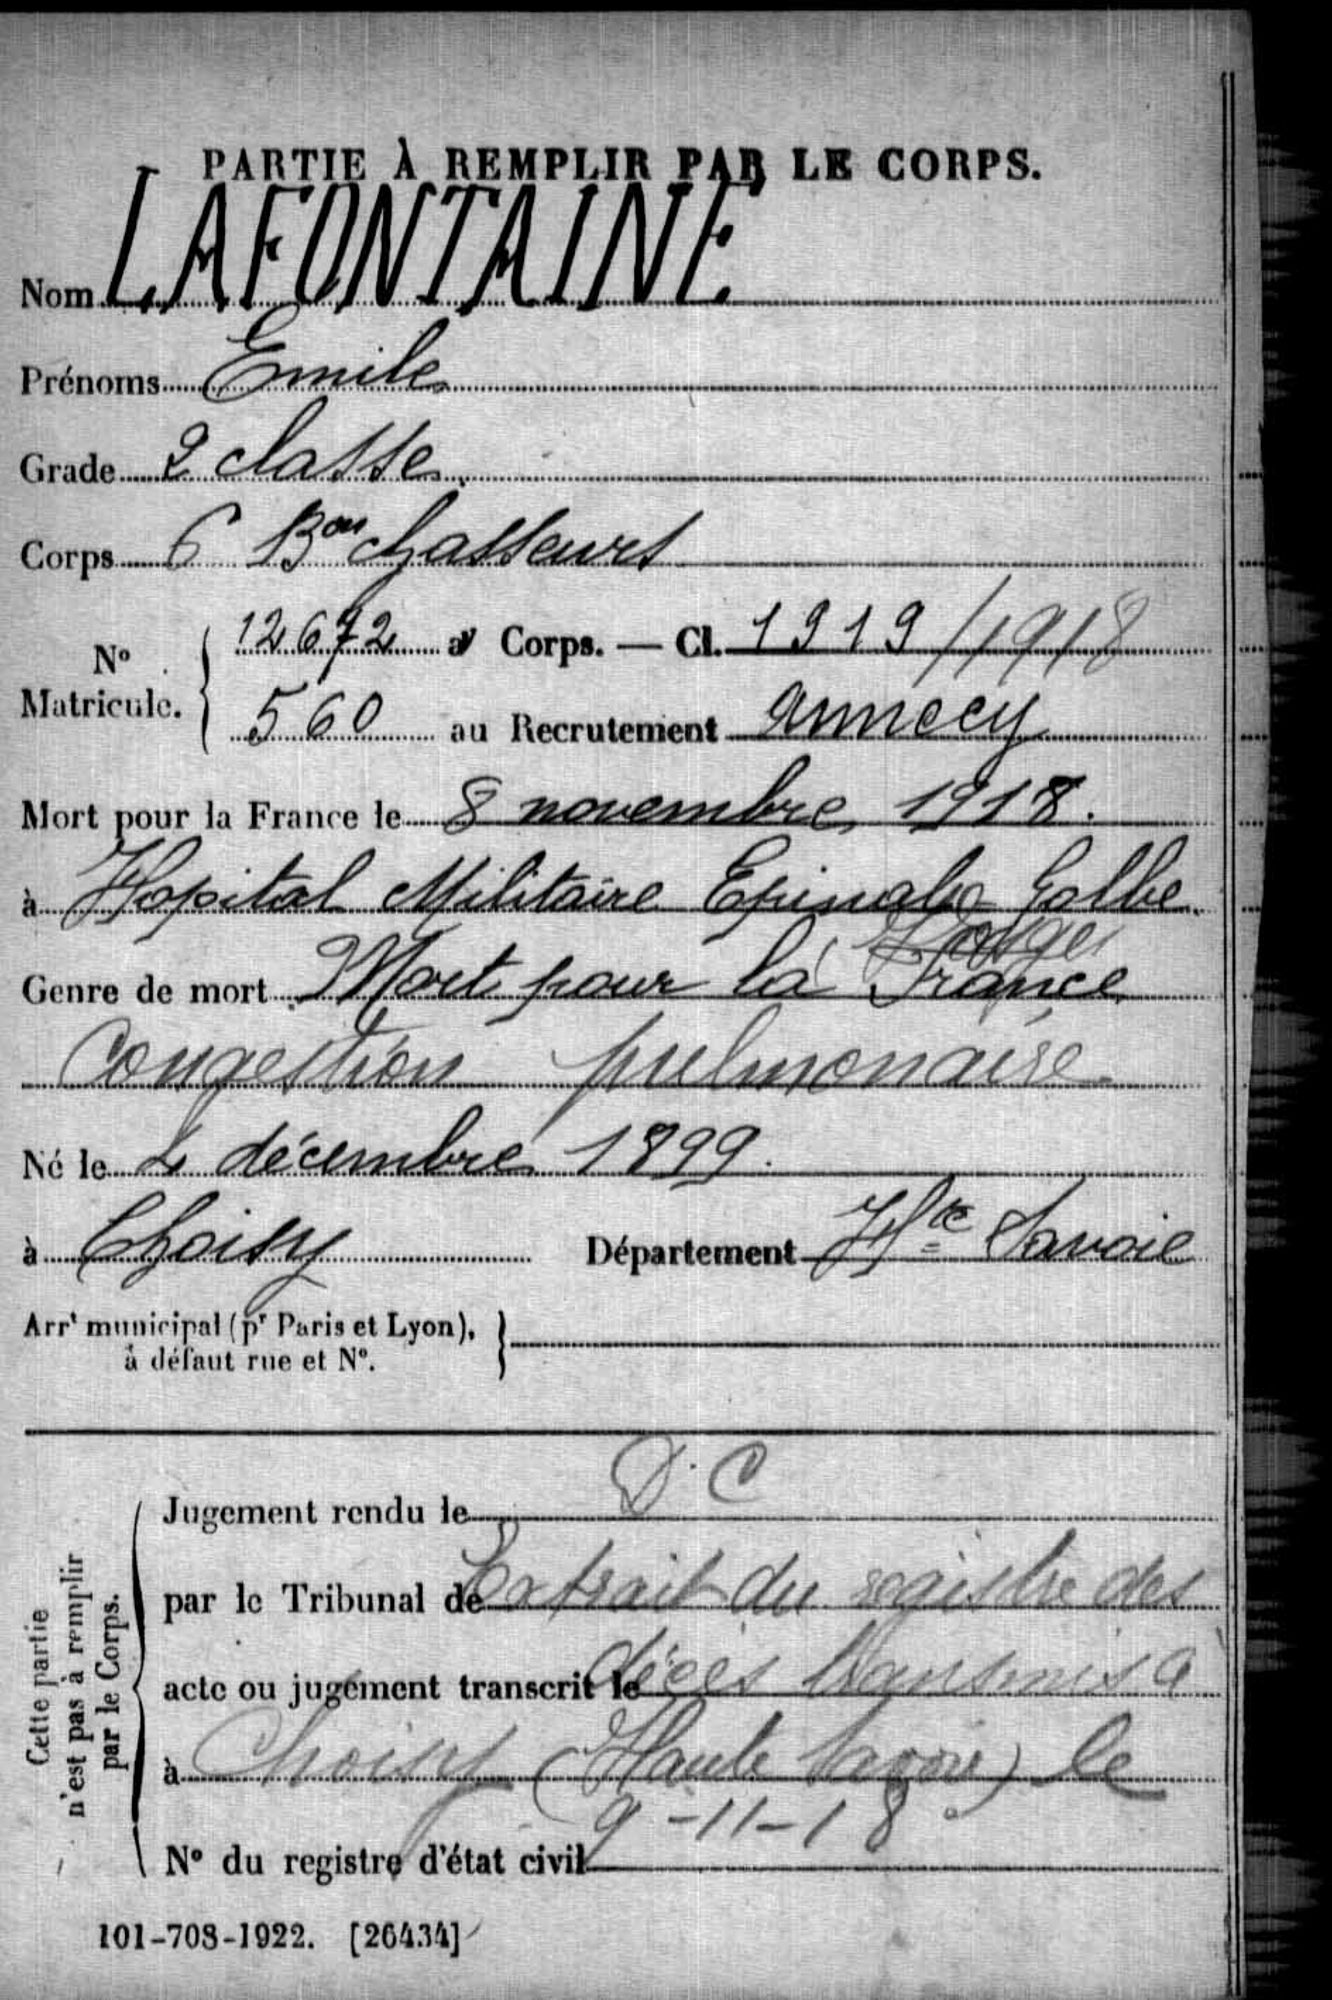 PARTIE À REMPLIR PAR LE CORPS.
Nom LAFONTAINE
Prénoms Emile
Grade 2 classe
Corps 6 Bon chasseurs
No Matricule. 12672 au Corps. — Cl. 1919/1918
560 au Recrutement Annecy
Mort pour la France le 8 novembre 1918.
à Hopital Militaire Epinal Golbe
Vosges
Genre de mort Mort pour la France
Congestion pulmonaire
Né le 4 décembre 1899.
à Choisy Département Hte Savoie
Arrt municipal (pr Paris et Lyon),
à défaut rue et No.
Cette partie n'est pas à remplir par le Corps.
D. C
Jugement rendu le
par le Tribunal de Extrait du registre des
acte ou jugement transcrit le décès transmis à
à Choisy (Haute Savoie) le
9-11-18
No du registre d'état civil
101-708-1922. [26434]